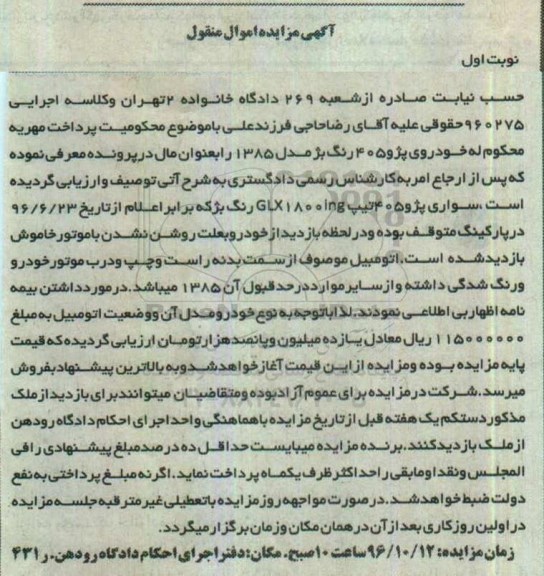 آگهی مزایده اموال منقول
نوبت اول
حسب نیابت صادره از شعبه ۲۶۹ دادگاه خانواده ۲تهران وکلاسه اجرایی
۹۶۰۲۷۵حقوقی علیه آقای رضاحاجی فرزندعلی باموضوع محکومیت پرداخت مهریه
محکوم له خودروی پژو۴۰۵ رنگ بژ مدل ۱۳۸۵ رابعنوان مال درپرونده معرفی نموده
که پس از ارجاع امربه کارشناس رسمی دادگستری به شرح آتی توصیف وارزیابی گردیده
است ،سواری پژو۴۰۵تیپ GLX۱۸۰۰ing رنگ بژکه برابر اعلام ازتاریخ ۹۶/۶/۲۳
درپارکینگ متوقف بوده ودرلحظه بازدیدازخودروبعلت روشن نشدن باموتورخاموش
بازدیدشده است.اتومبیل موصوف ازسمت بدنه راست وچپ ودرب موتورخودرو
ورنگ شدگی داشته وازسایرموارددرحدقبول آن ۱۳۸۵ میباشد.درموردداشتن بیمه
نامه اظهاربی اطلاعی نمودند.لذاباتوجه به نوع خودرومدل آن ووضعیت اتومبیل به مبلغ
۱۱۵۰۰۰۰۰۰ ریال معادل یازده میلیون وپانصدهزارتومان ارزیابی گردیده که قیمت
پایه مزایده بوده ومزایده ازاین قیمت آغازخواهدشدوبه بالاترین پیشنهادبفروش
میرسد.شرکت درمزایده برای عموم آزادبوده ومتقاضیان میتوانندبرای بازدیدازملک
مذکوردستکم یک هفته قبل ازتاریخ مزایده باهماهنگی واحداجرای احکام دادگاه رودهن
ازملک بازدیدکنند.برنده مزایده میبایست حداقل ده درصدمبلغ پیشنهادی رافی
المجلس ونقداومابقی راحداکثرظرف یکماه پرداخت نماید.اگرنه مبلغ پرداختی به نفع
دولت ضبط خواهدشد.درصورت مواجهه روزمزایده باتعطیلی غیرمترقبه جلسه مزایده
دراولین روزکاری بعدازآن درهمان مکان وزمان برگزارمیگردد.
زمان مزایده: ۹۶/۱۰/۱۲ساعت ۱۰صبح. مکان:دفتراجرای احکام دادگاه رودهن. ر ۴۳۱